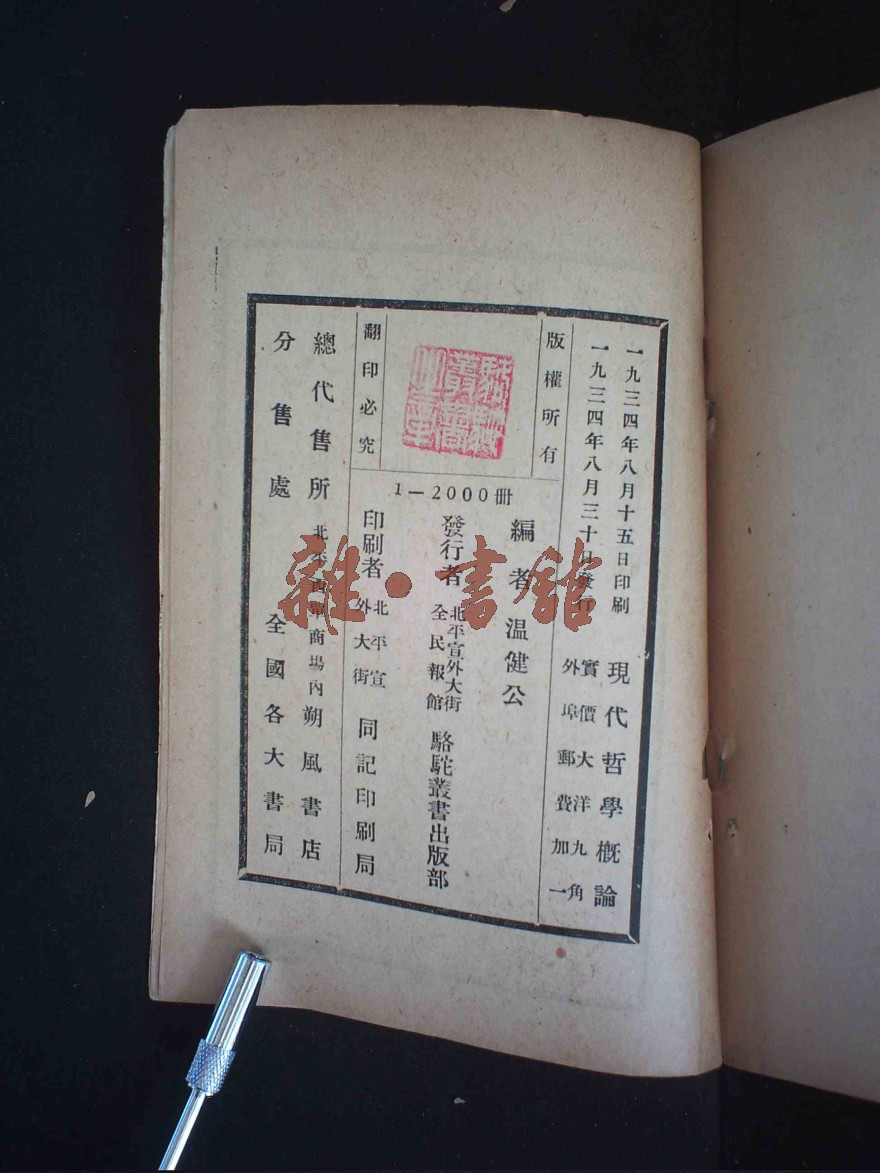 一九三四年八月十五日印刷
一九三四年八月三十日發行
現代哲學概論
實價大洋九角
外埠郵費加一
版權所有
駱駝叢書
翻印必究
1—2000冊
編者 溫健公
發行者 北平宣外大街全民報館 駱駝叢書出版部
印刷者 北平宣外大街 同記印刷局
總代售所 北平西單商場內 朔風書店
分售處 全國各大書局
雜·書館